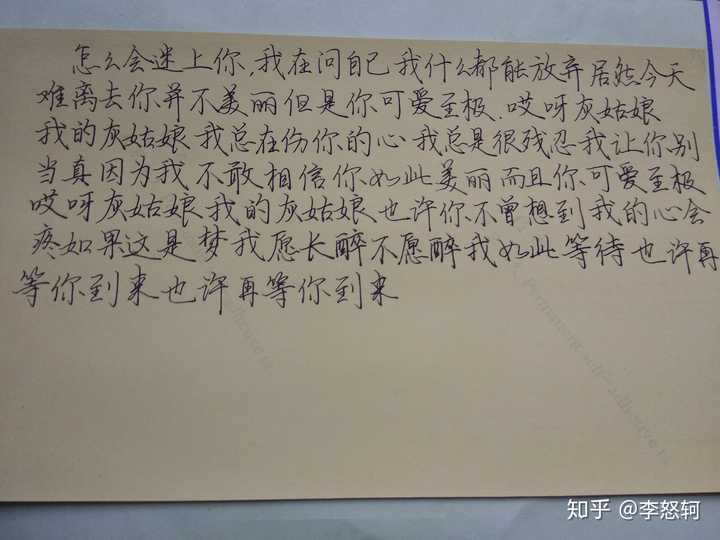 怎么会迷上你,我在问自己我什么都能放弃居然今天
难离去你并不美丽但是你可爱至极.哎呀灰姑娘
我的灰姑娘我总在伤你的心我总是很残忍我让你别
当真因为我不敢相信你如此美丽而且你可爱至极
哎呀灰姑娘我的灰姑娘也许你不曾想到我的心会
疼如果这是梦我愿长醉不愿醉我如此等待也许再
等你到来也许再等你到来
Permanent self-adhesive
知乎 @李怒轲